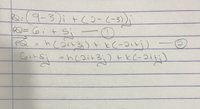 PQ = (9-3)i + (2-(-3))j
PQ = 6i + 5j — ①
PQ = h(2i+3j) + k(-2i+j) — ②
6i+5j = h(2i+3j) + k(-2i+j)